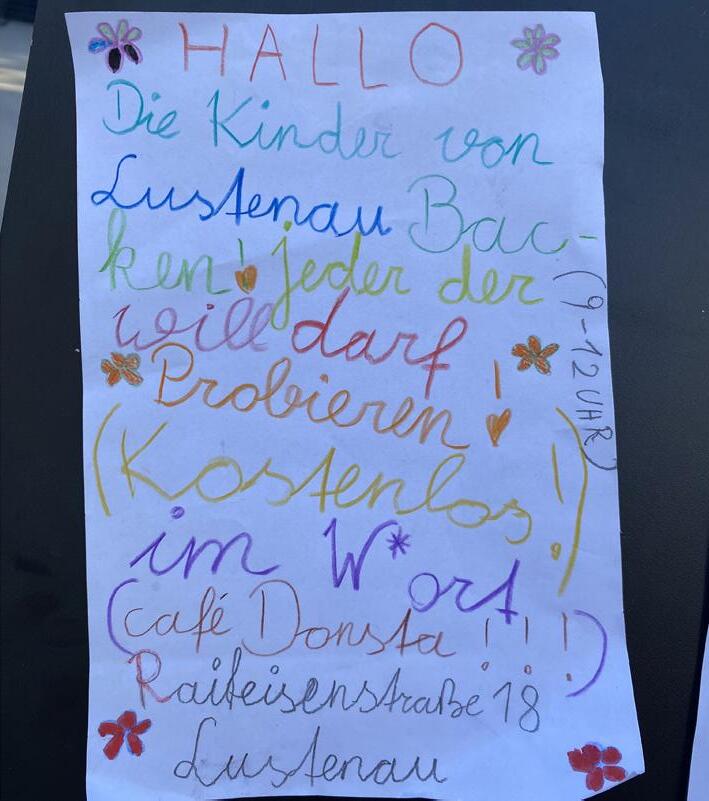 HALLO
Die Kinder von
Lustenau Bac-
ken! jeder der
will darf
Probieren!
(Kostenlos!)
im W*ort
(café Donsta!!!)
Raifeisenstraße 18
Lustenau
(9-12 UHR)